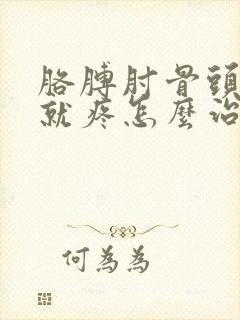 胳膊肘骨頭
就疼怎麼治
何為為